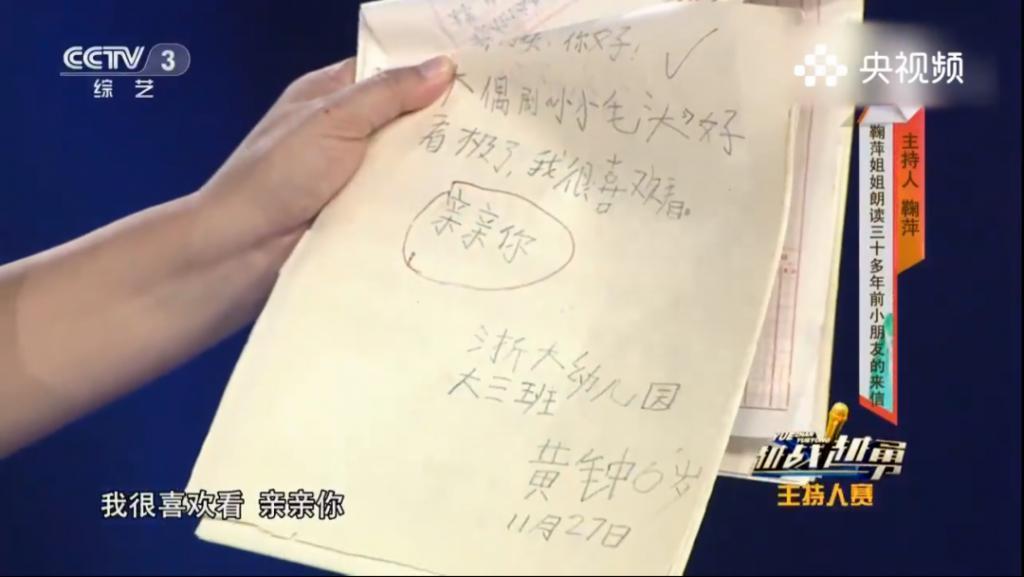 CCTV 3
综艺
央视频
你好!
木偶剧“小小毛头”好
看极了,我很喜欢看。
亲亲你
浙大幼儿园
大三班
黄钟6岁
11月27日
主持人 鞠萍
鞠萍姐姐朗读三十多年前小朋友的来信
越战越勇
主持人赛
我很喜欢看 亲亲你